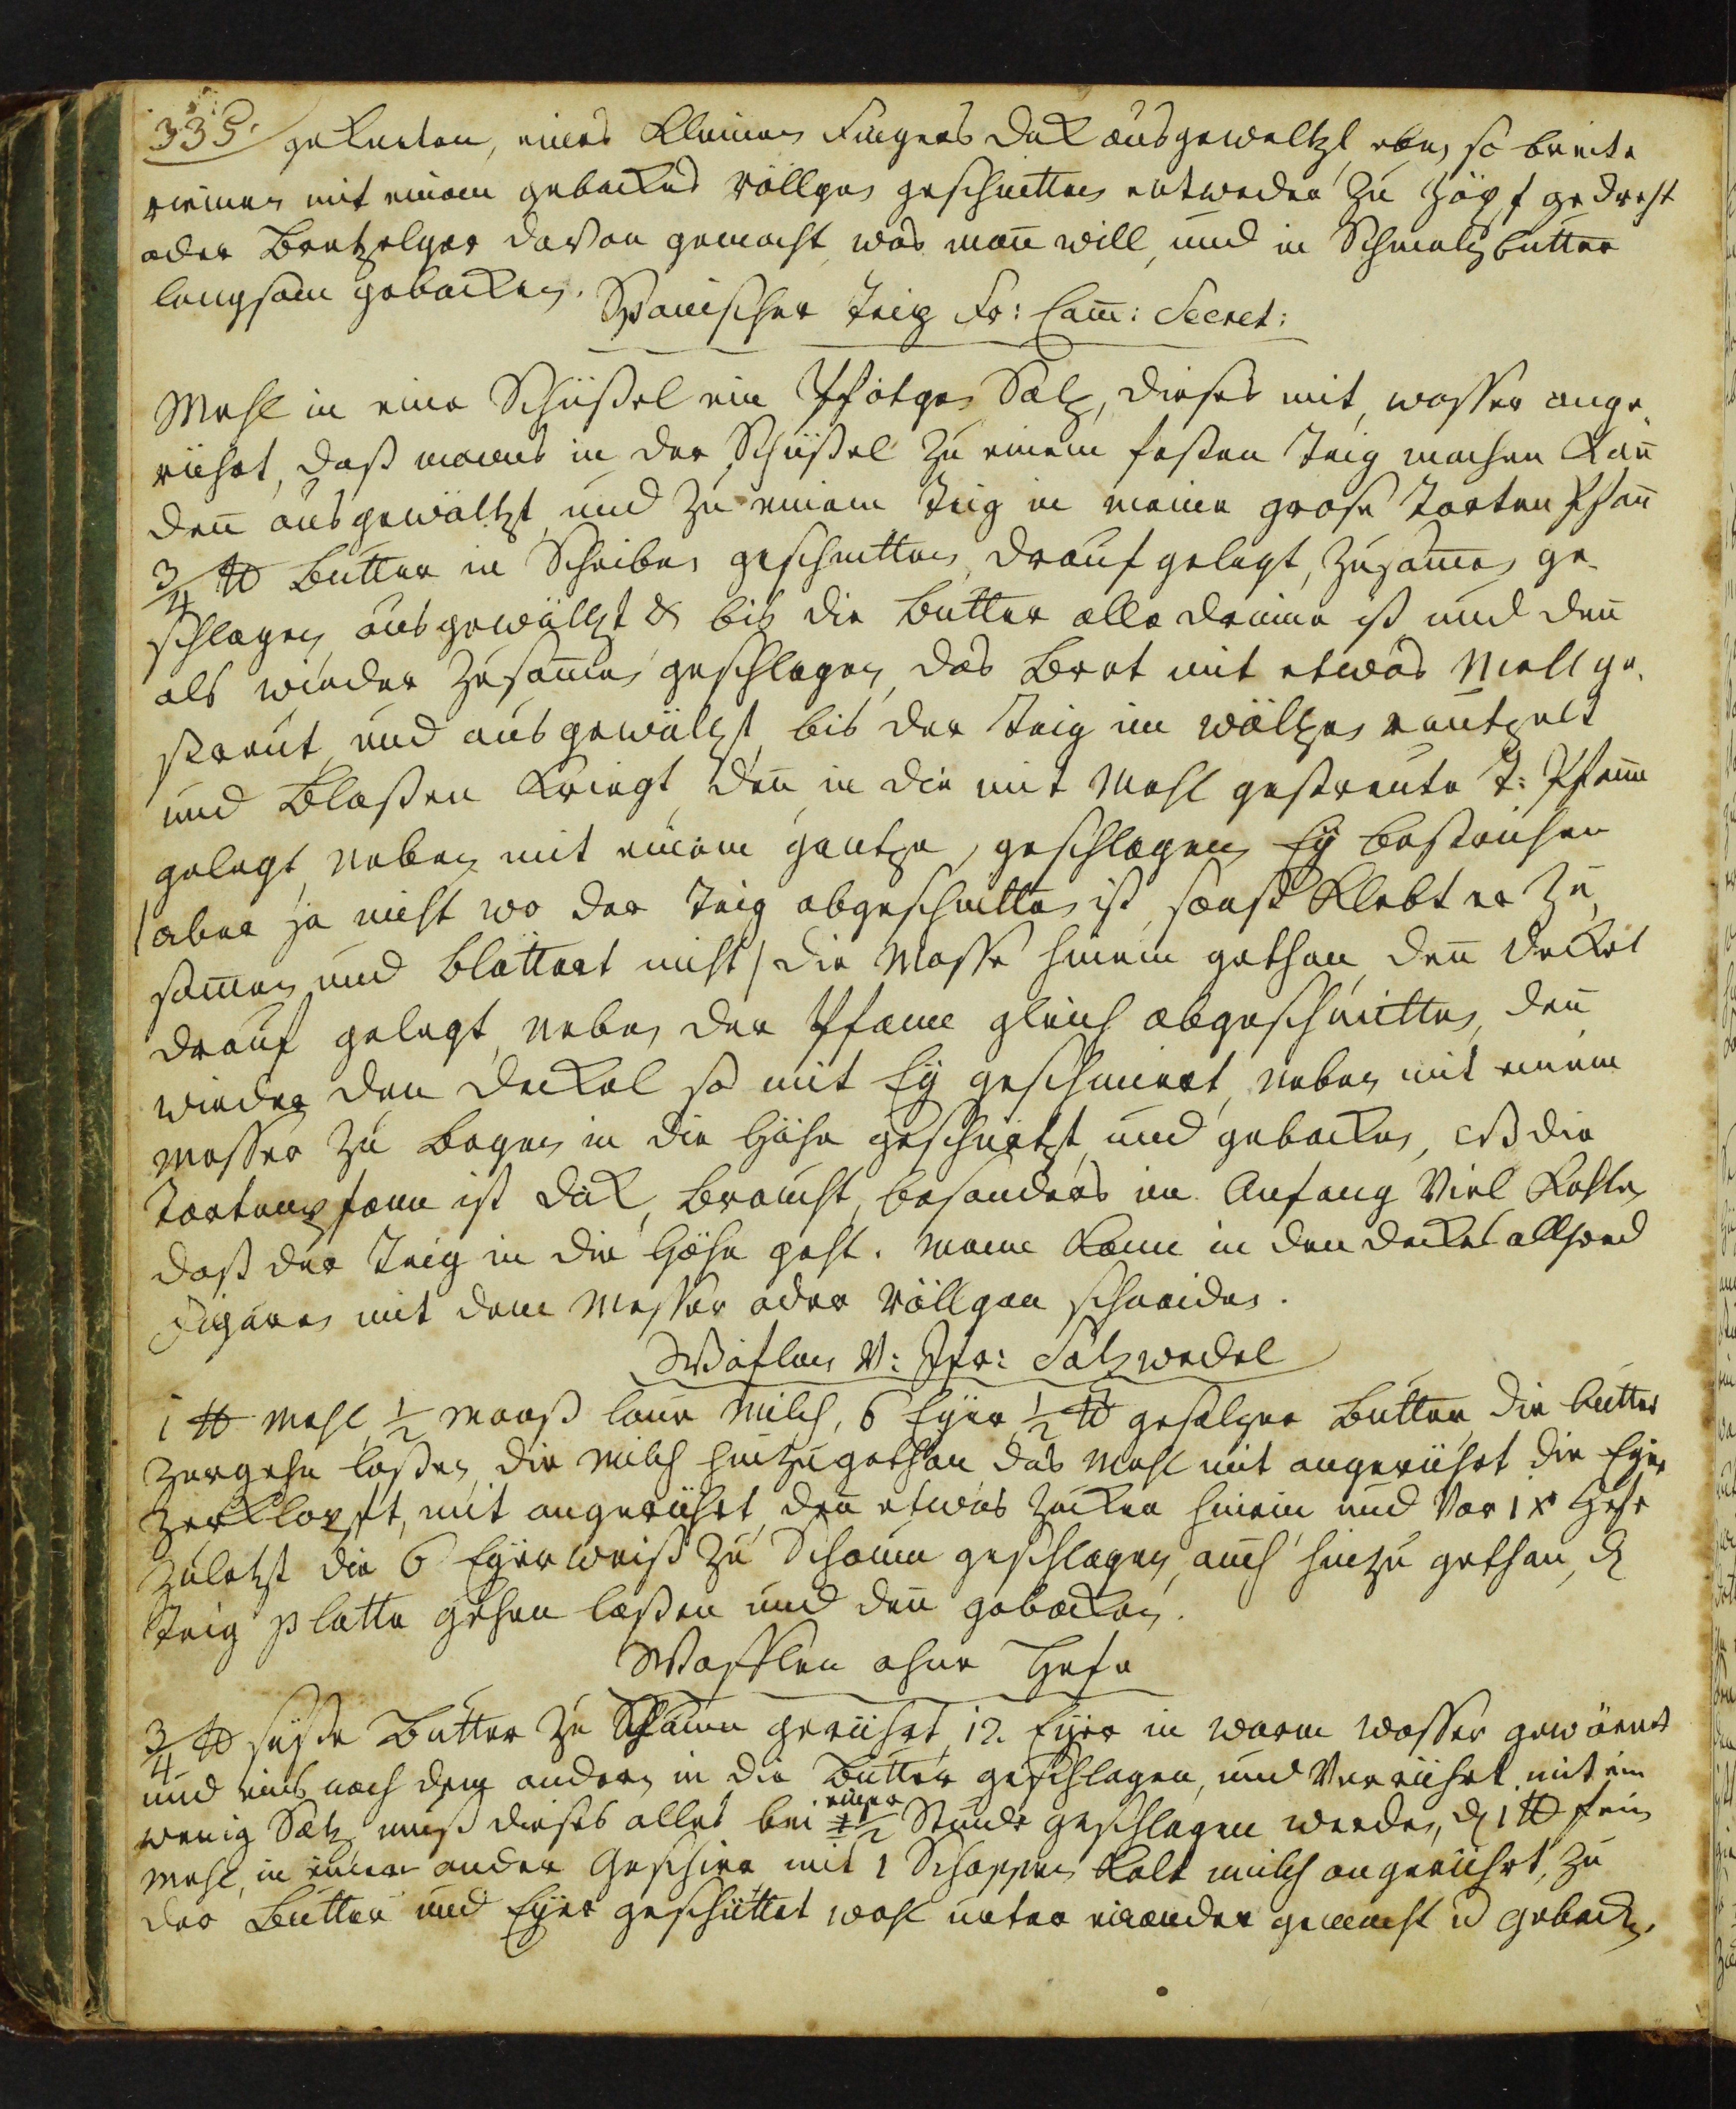 335. gekneten, eines kleinen Fingers dick ausgeweltzt, eben so breite
riemen mit einem gebackes röllgen geschnitten entweder zu Zöpf gedreht
oder Bretzelger davon gemacht, was man will, und in Schmaltzbutter
langsam gebacken.
Spanischer Teig Fr: Cam̄: Secret:
Mehl in eine Schüßel ein Pfötgen Saltz, dieses mit wasser ange
rührt, daß manns in der Schüßel zu einem festen Teig machen kan̄
den̄ ausgewältzt und zu einem Teig in meine grose Torten Pfan̄
3/4 ℔ Butter in Scheiben geschnitten, drauf gelegt, zusam̄en ge
schlagen ausgewältzt & bis die Butter alle drinne ist und den̄
als wieder zusam̄en geschlagen, das Bret mit etwas Mell ge
streut und ausgewältzt, bis der Teig im wältzen runtzelt
und Blaßen kriegt, den̄ in die mit Mehl gestreute T: Pfanne
gelegt, neben mit einem gantze, geschlagen Ey bestrichen
/aber ja nicht wo der Teig abgeschnitten ist, sonst klebt er zu
sam̄en und blättert nicht/ die Masse hinein gethan, den̄ Deckel
drauf gelegt, neben der Pfanne gleich abgeschnitten, den̄
wieder den Deckel so mit Ey geschmiert, neben mit einem
Messer zu Bogen in die Höhe geschnitzt und gebacken, ist die
Tortenpfann ist dick, braucht besonders im Anfang viel Kohlen
daß der Teig in die Höhe geht. Mann kann in den Deckel allhand
Figuren mit dem Messer oder röllgen schneiden.
Waflen v: Fr: Saltzwedel
1 ℔ Mehl, 1/2 Maaß laue Milch, 6 Eyer, 1/2 ℔ gesaltzene Butter, die Butter
zergehn laßen, die Milch hinzugethan, das Mehl mit angerührt, die Eyer
zerklopft, mit angerührt, den̄ etwas Zucker hinein und vor 1 x Hefe
zuletzt die 6 Eyerweiß zu Schaum geschlagen, auch hinzu gethan, d
Teig platte gehen laßen und den̄ gebacken.
Wafflen ohne Hefe
3/4 ℔ süße Butter zu Schaum gerührt, 12. Eyer in warm wasser gewärmt
und eins nach dem andern in die Butter geschlagen, und verrührt mit ein
wenig Saltz, muß dieses alles bei einer 1/2 Stunde geschlagen werden, d 1 ℔ fein
Mehl, in einem ander Geschirr mit 1 Schoppen kalt milch angerührt, zu
der Butter und Eyer geschüttet wohl unter einander gemacht u gebacken.